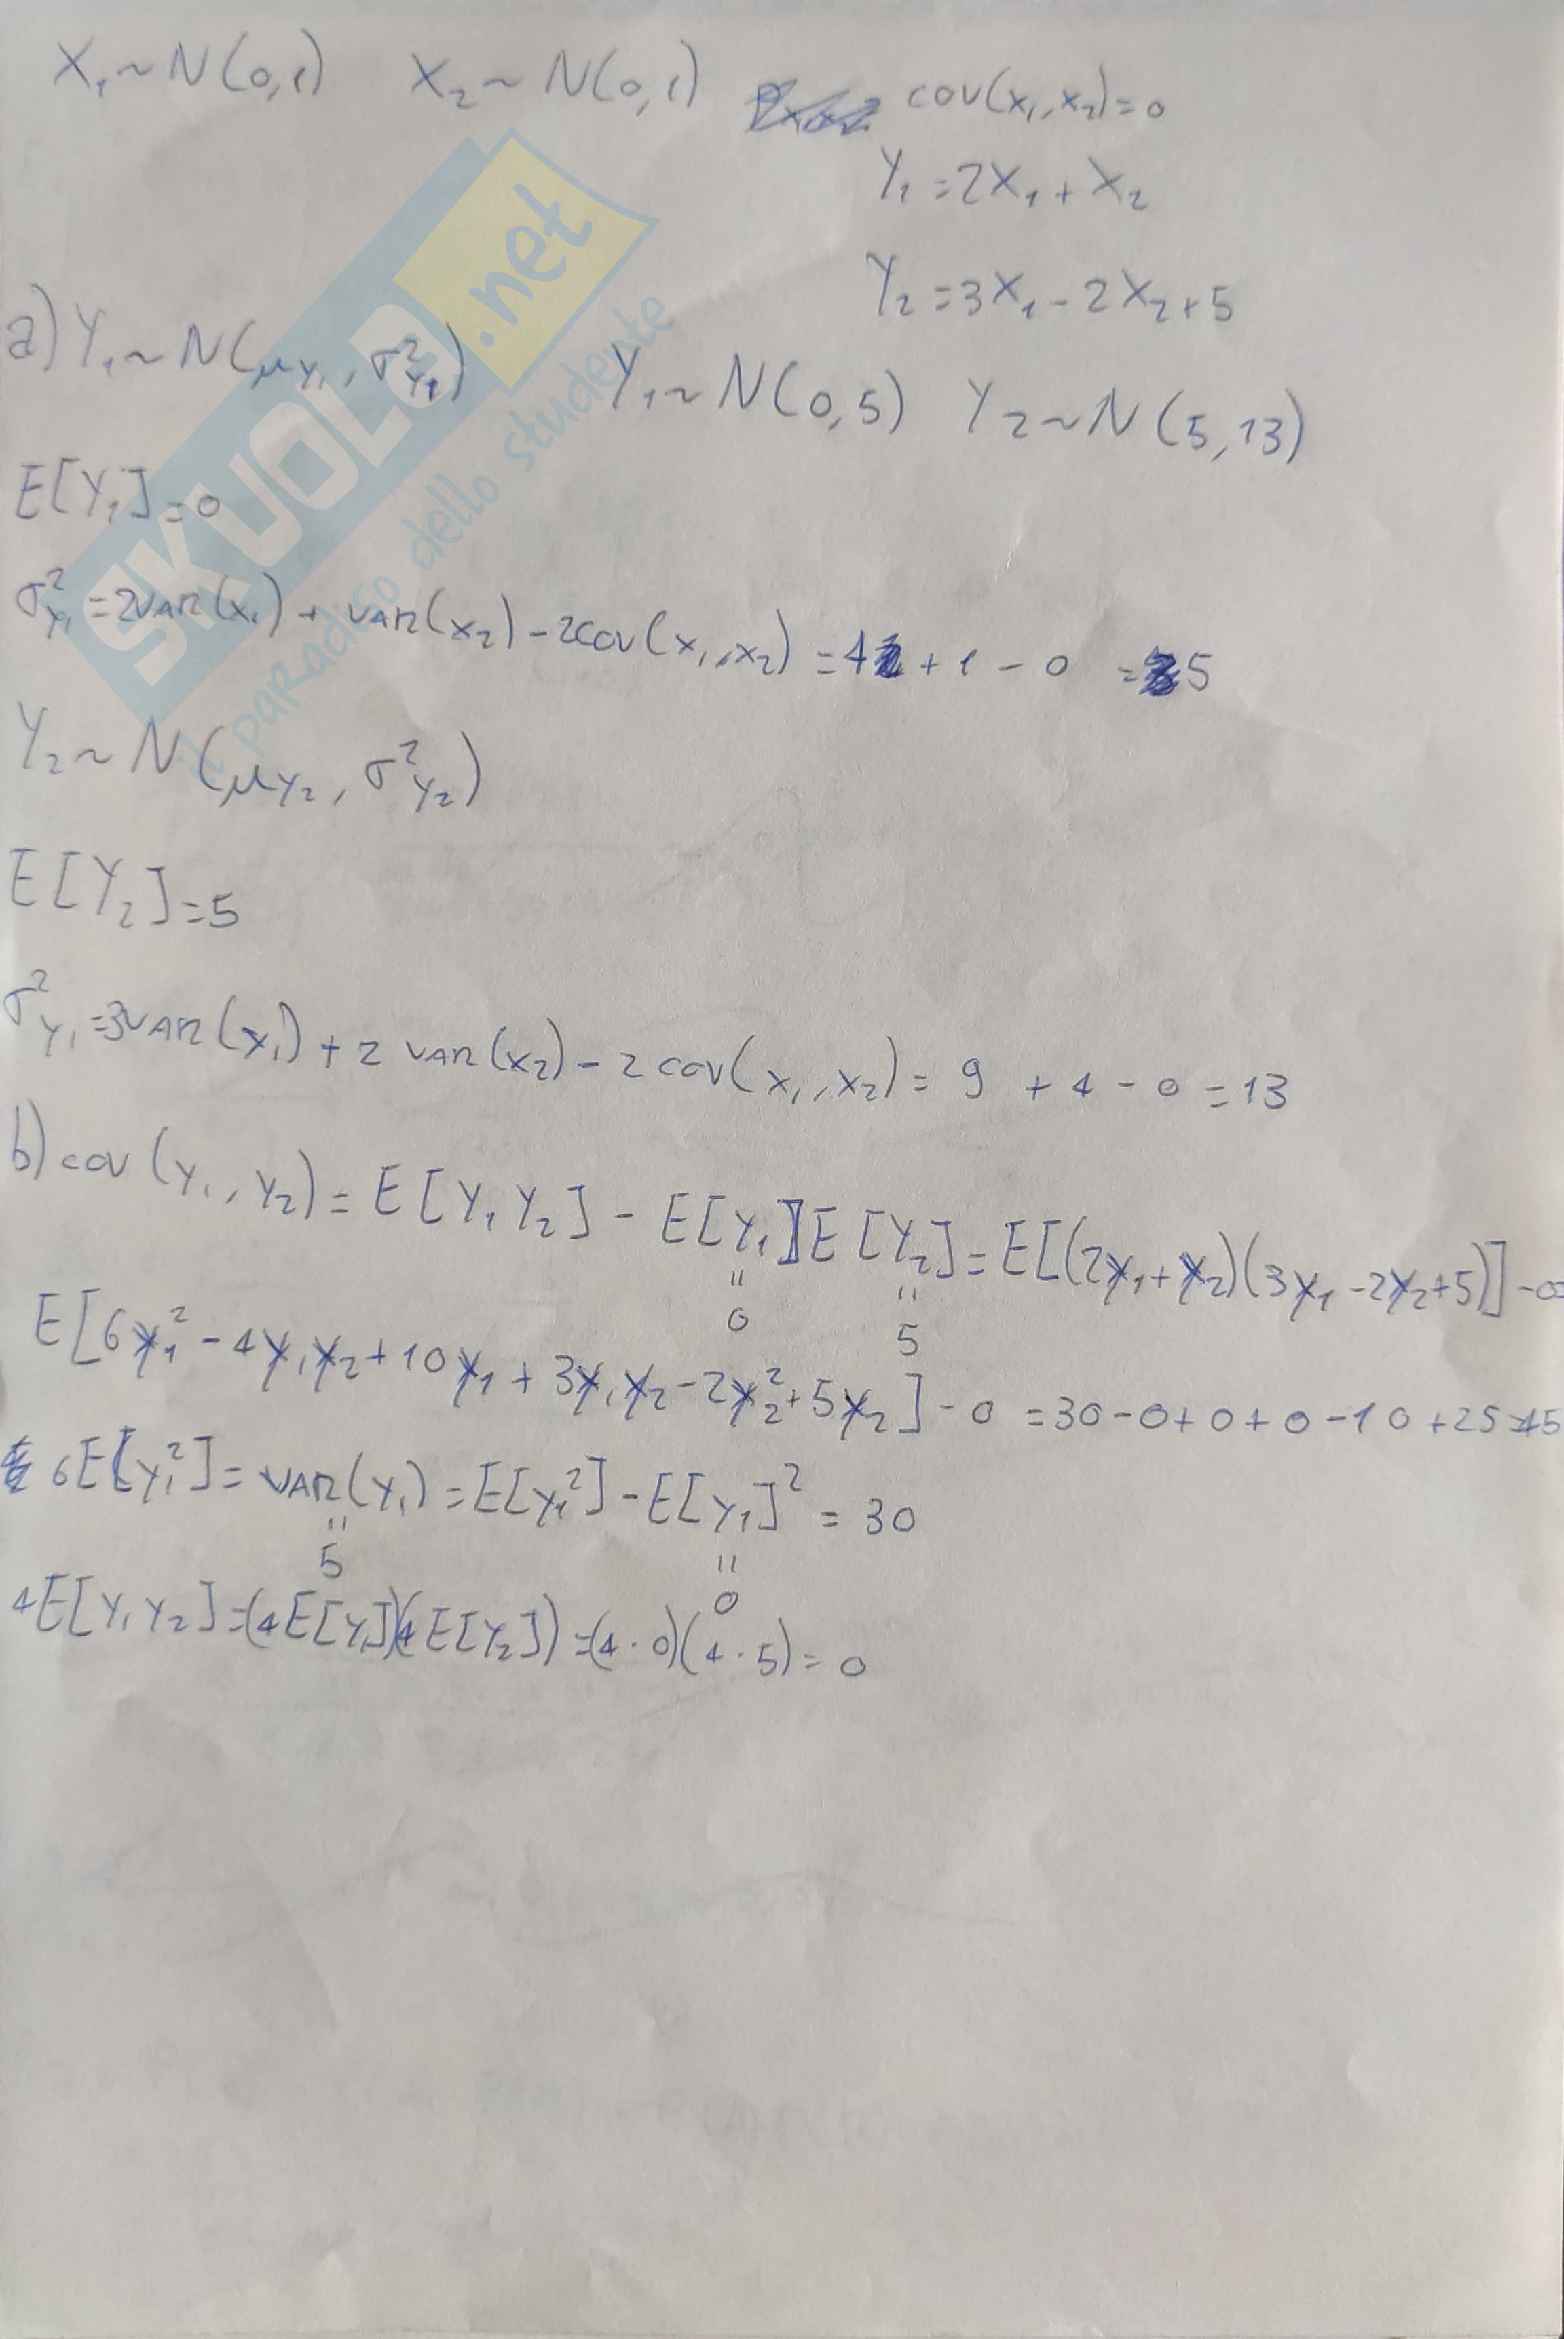 X₁~N(0,1) X₂~N(0,1) cov(x₁,x₂)=0
Y₁=2X₁+X₂
Y₂=3X₁-2X₂+5
a) Y₁~N(μY₁, σ²Y₁) Y₁~N(0,5) Y₂~N(5,13)
E[Y₁]=0
σ²Y₁=2VAR(X₁)+VAR(X₂)-2COV(X₁,X₂)=4+1-0=5
Y₂~N(μY₂, σ²Y₂)
E[Y₂]=5
σ²Y₁=3VAR(X₁)+2VAR(X₂)-2cov(X₁,X₂)=9+4-0=13
b) cov(Y₁,Y₂)=E[Y₁Y₂]-E[Y₁]E[Y₂]=E[(2X₁+X₂)(3X₁-2X₂+5)]-0=
" 0 " 5
E[6X₁²-4X₁X₂+10X₁+3X₁X₂-2X₂²+5X₂]-0=30-0+0+0-10+25=45
6E[Y₁²]=VAR(Y₁)=E[Y₁²]-E[Y₁]²=30
" 5 " 0
4E[Y₁Y₂]=(4E[Y₁])(4E[Y₂])=(4·0)(4·5)=0
SKUOLA.net
il paradiso dello studente